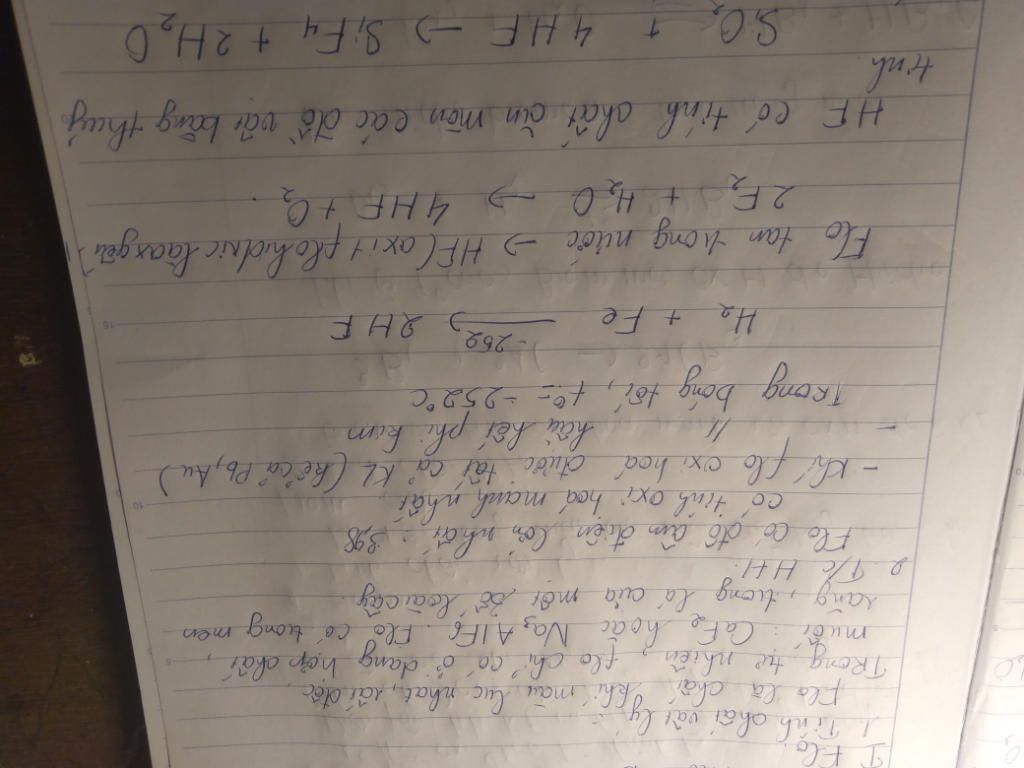 I Flo.
1. Tính chất vật lý :
Flo là chất khí màu lục nhạt, rất độc.
Trong tự nhiên, flo chỉ có ở dạng hợp chất,
muối : CaF2 hoặc Na3AlF6. Flo có trong men
răng, trong lá của một số loài cây.
2. T/c HH.
Flo có độ âm điện lớn nhất : 3,98
có tính oxi hoá mạnh nhất
- Khí flo oxi hoá được tất cả KL (kể cả Pb, Au)
- // hầu hết phi kim
Trong bóng tối, t° = -252°C
H2 + Fe -252 → 2HF
Flo tan trong nước → HF (axit flohidric
2F2 + H2O → 4HF + O2
HF có tính chất ăn mòn các đồ vật bằng thuỷ
tinh.
SiO2 + 4HF → SiF4 + 2H2O